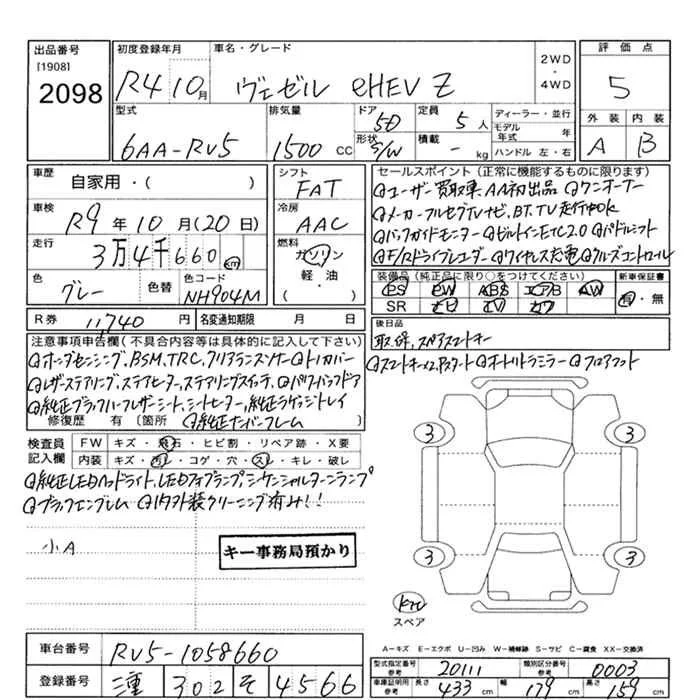 出品番号
[1908]
2098
初度登録年月
R4 10月
車名・グレード
ヴェゼル eHEV Z
2WD
・
4WD
評価点
5
型式
6AA-RV5
排気量
1500 CC
ドア
5D
形状
S/W
定員
5 人
積載
- kg
ディーラー・並行
モデル年式 年
ハンドル 左・右
外装 内装
A B
車歴
自家用・( )
シフト
FAT
車検
R9年10月(20日)
冷房
AAC
走行
3万4千660 km
燃料
ガソリン
軽・油
( )
色
グレー
色替
色コード
NH904M
R券 11,740 円
名変通知期限 月 日
セールスポイント(正常に機能するものに限ります)
◎ユーザー買取車、AA初出品 ◎ワンオーナー
◎メーカーフルセグTVナビ、BT、TV走行中OK
◎バックガイドモニター ◎ビルトインETC2.0 ◎パドルシフト
◎F/Rドライブレコーダー ◎ワイヤレス充電 ◎クルーズコントロール
装備品(純正品に限り○をつけてください)
新車保証書
PS PW ABS エアB AW
有・無
SR ナビ TV カワ
後日品
取説、スペアスマートキー
注意事項申告欄(不具合内容等は具体的に記入して下さい)
◎ホンダセンシング、BSM、TRC、クリアランスソナー ◎トノカバー
◎スマートキーX2、Pスタート ◎オートリトラミラー ◎フロアマット
◎レザーステアリング、ステアヒーター、ステアリングスイッチ ◎パワーバックドア
◎純正ブラックハーフレザーシート、シートヒーター、純正ラゲッジトレイ
修復歴 有 〔箇所
◎純正ナンバーフレーム
検査員記入欄
FW キズ・飛石・ヒビ割・リペア跡・X要
内装 キズ・汚レ・コゲ・穴・スレ・キレ・破レ
◎純正LEDヘッドライト、LEDフォグランプ、シーケンシャルターンランプ
◎ブラックエンブレム ◎内外装クリーニング済み!!
小A
キー事務局預かり
3
3
3
3
スペア
A-キズ E-エクボ U-凹み W-補修跡 S-サビ C-腐食 XX-交換済
車台番号
RV5-1058660
登録番号
302 そ 4566
型式指定番号
参考
20111
類別区分番号
参考
0003
車庫証明用
参考
長さ 433 cm
幅 179 cm
高さ 159 cm